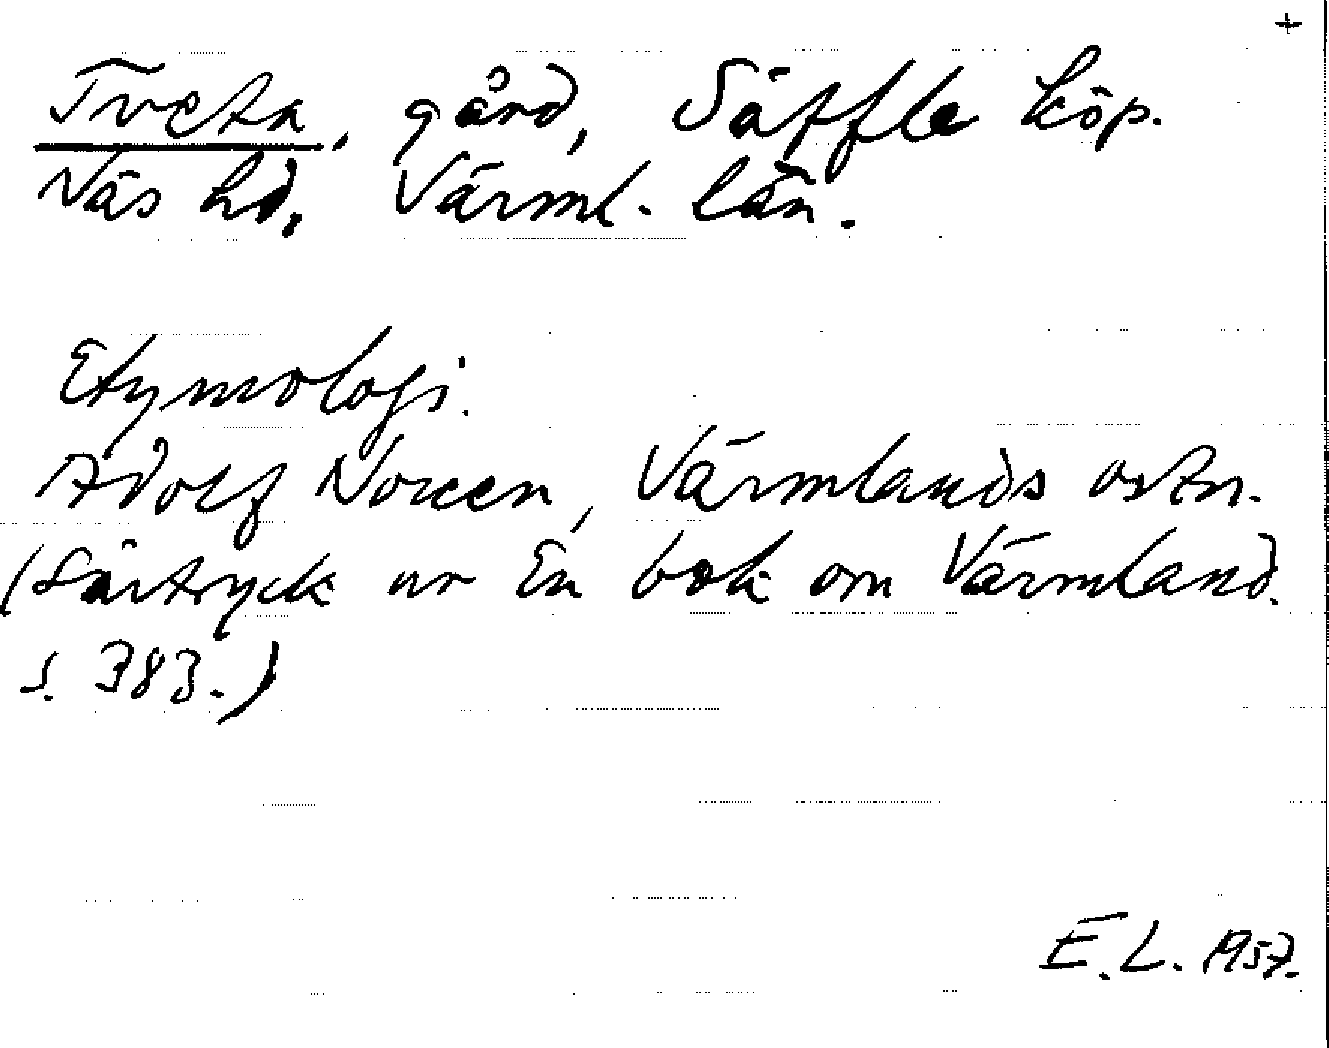 +
Tveta, gård, Säffle köp.
Näs hd, Värml. län.
Etymologi.
Adolf Noreen, Värmlands ortn.
(Särtryck ur En bok om Värmland.
s. 383.)
E.L. 1957.